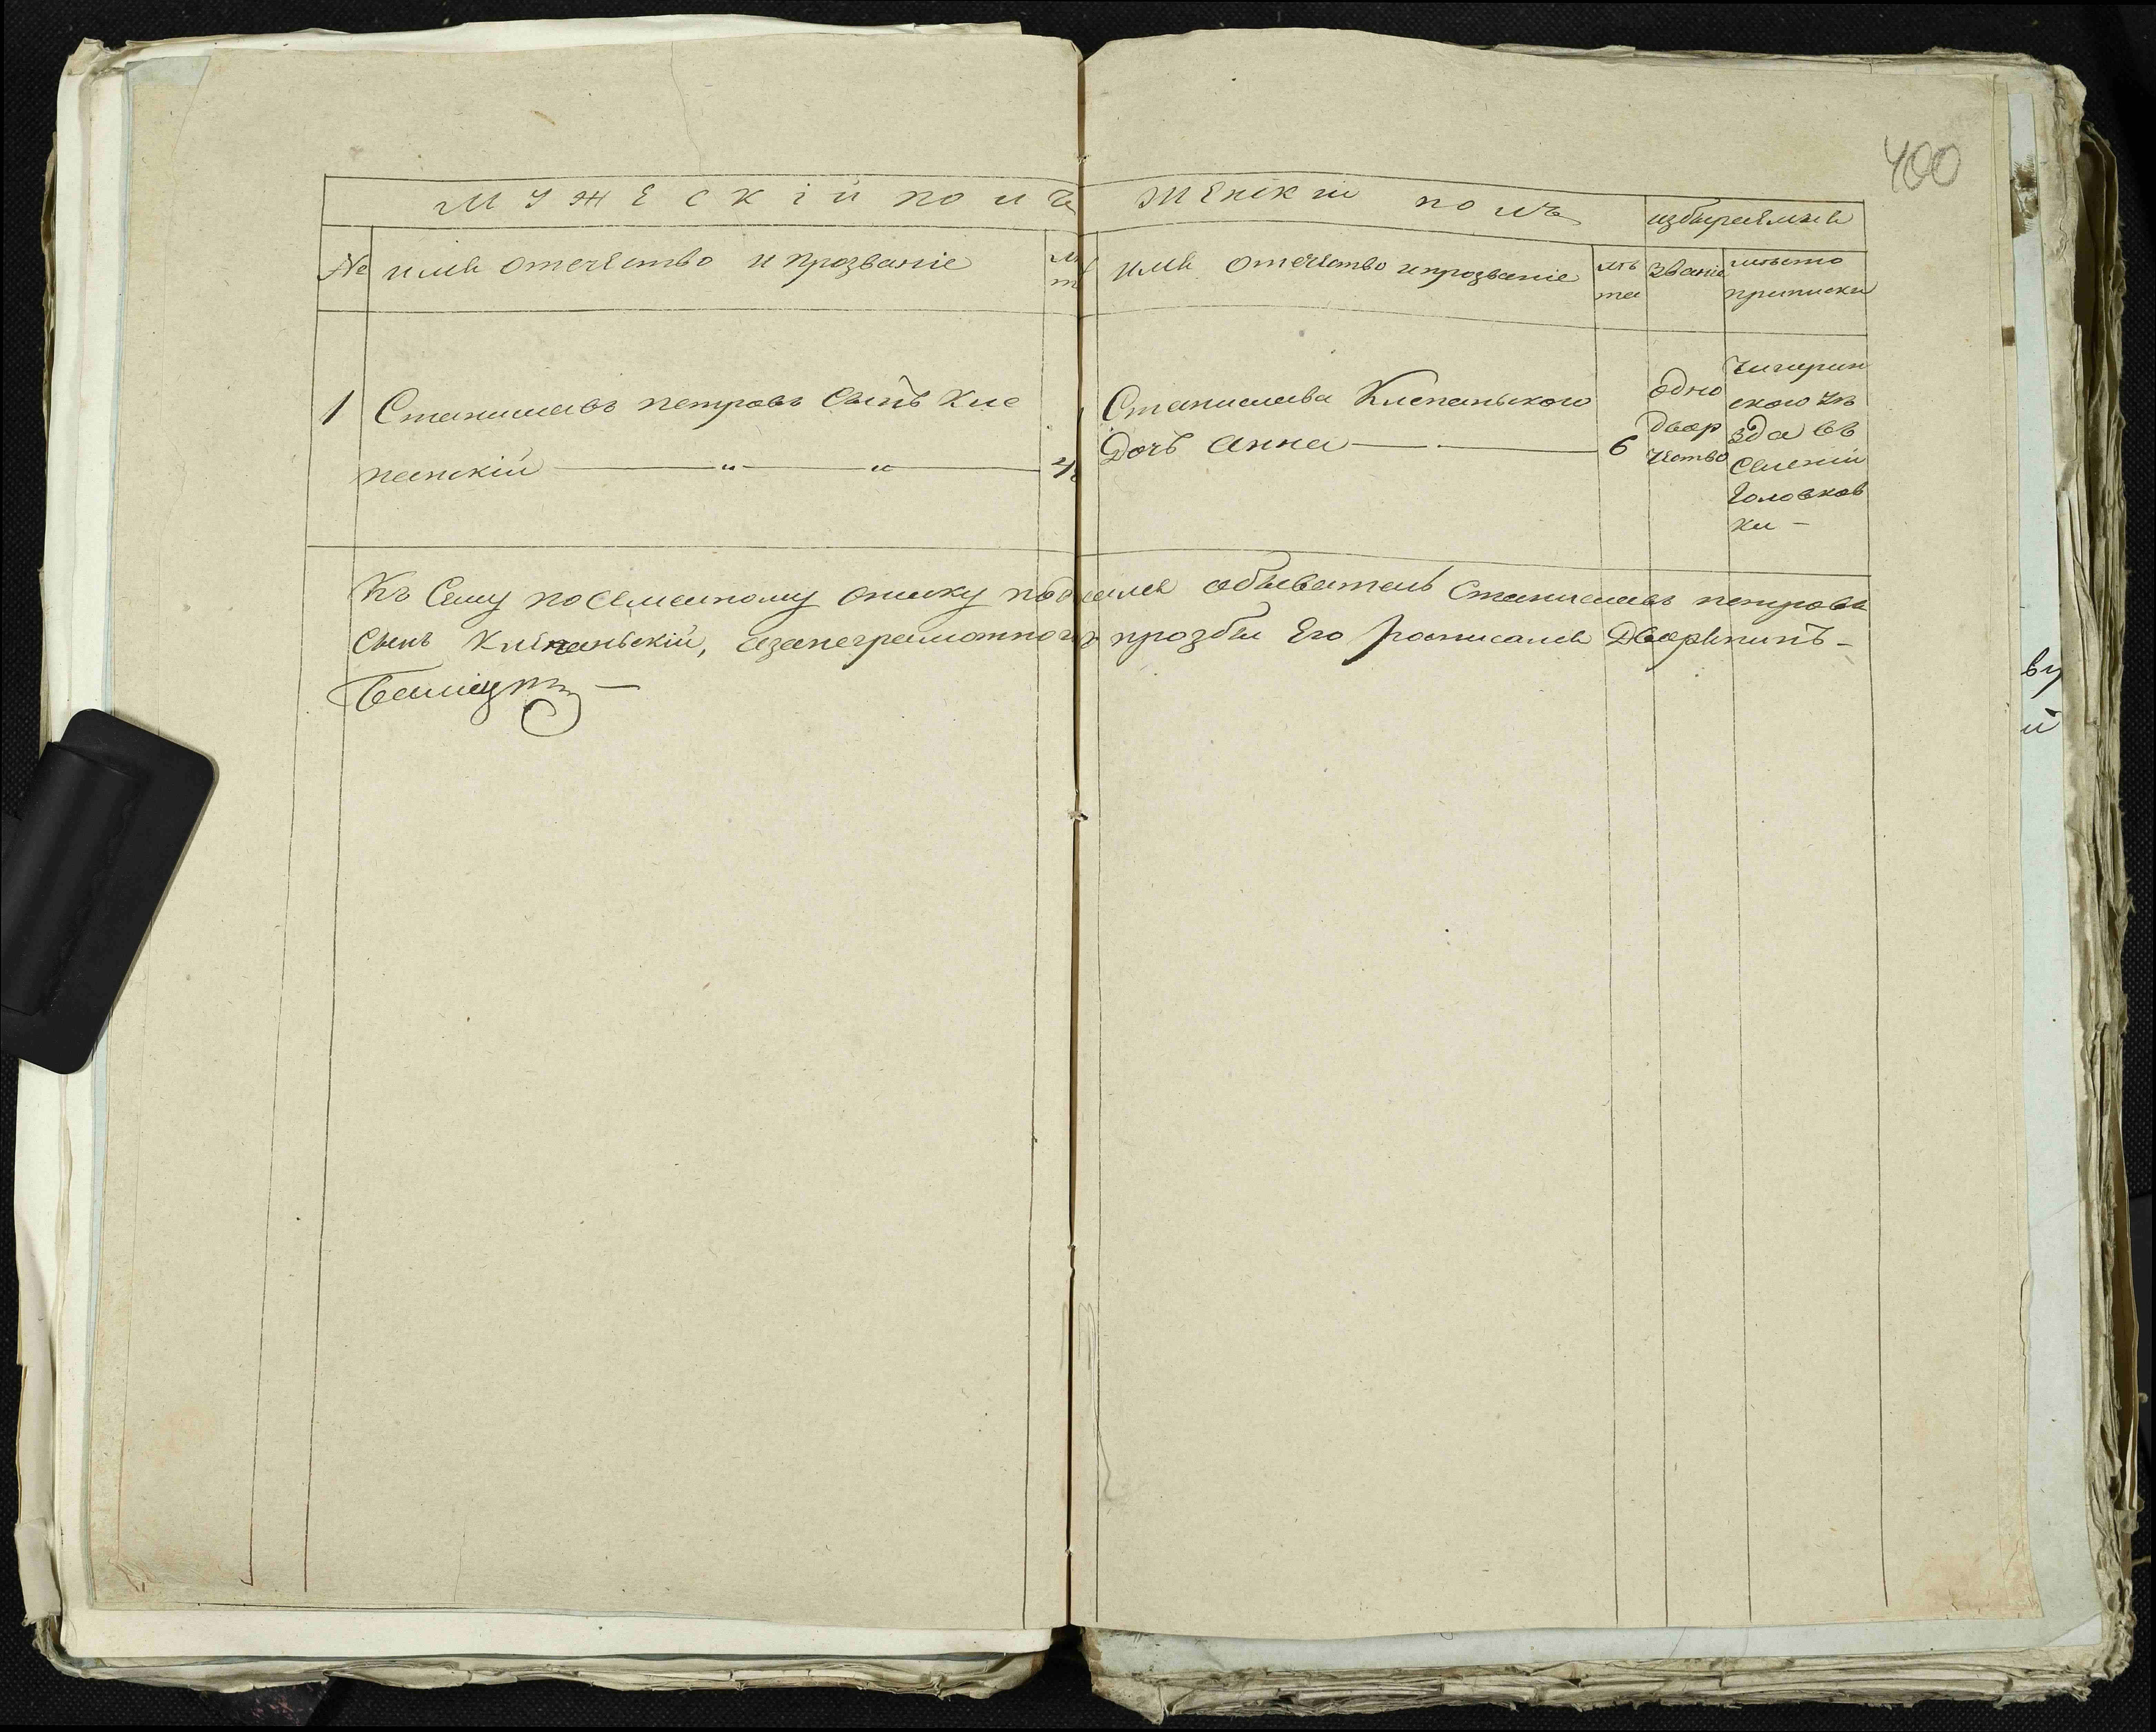 400
Мужескій полъ
Женскій полъ
избираемыя
№
имя отечество и прозваніе
имя отечество и прозваніе
лѣ
та
званіе
мѣсто
приписки
1
Станиславъ петровъ Сынъ Кле
панскій
Станислава Клепаньского
Дочь анна
6
одно
двор
чество
Чигирин
ского Уѣ
зда въ
Селеніи
Головков
ки
Къ Сему посемейному списку подписался обыватель Станиславъ петровъ
Сынъ Клепаньскій, азанеграмотного прозбы Его росписался Дворянинъ
ву
й